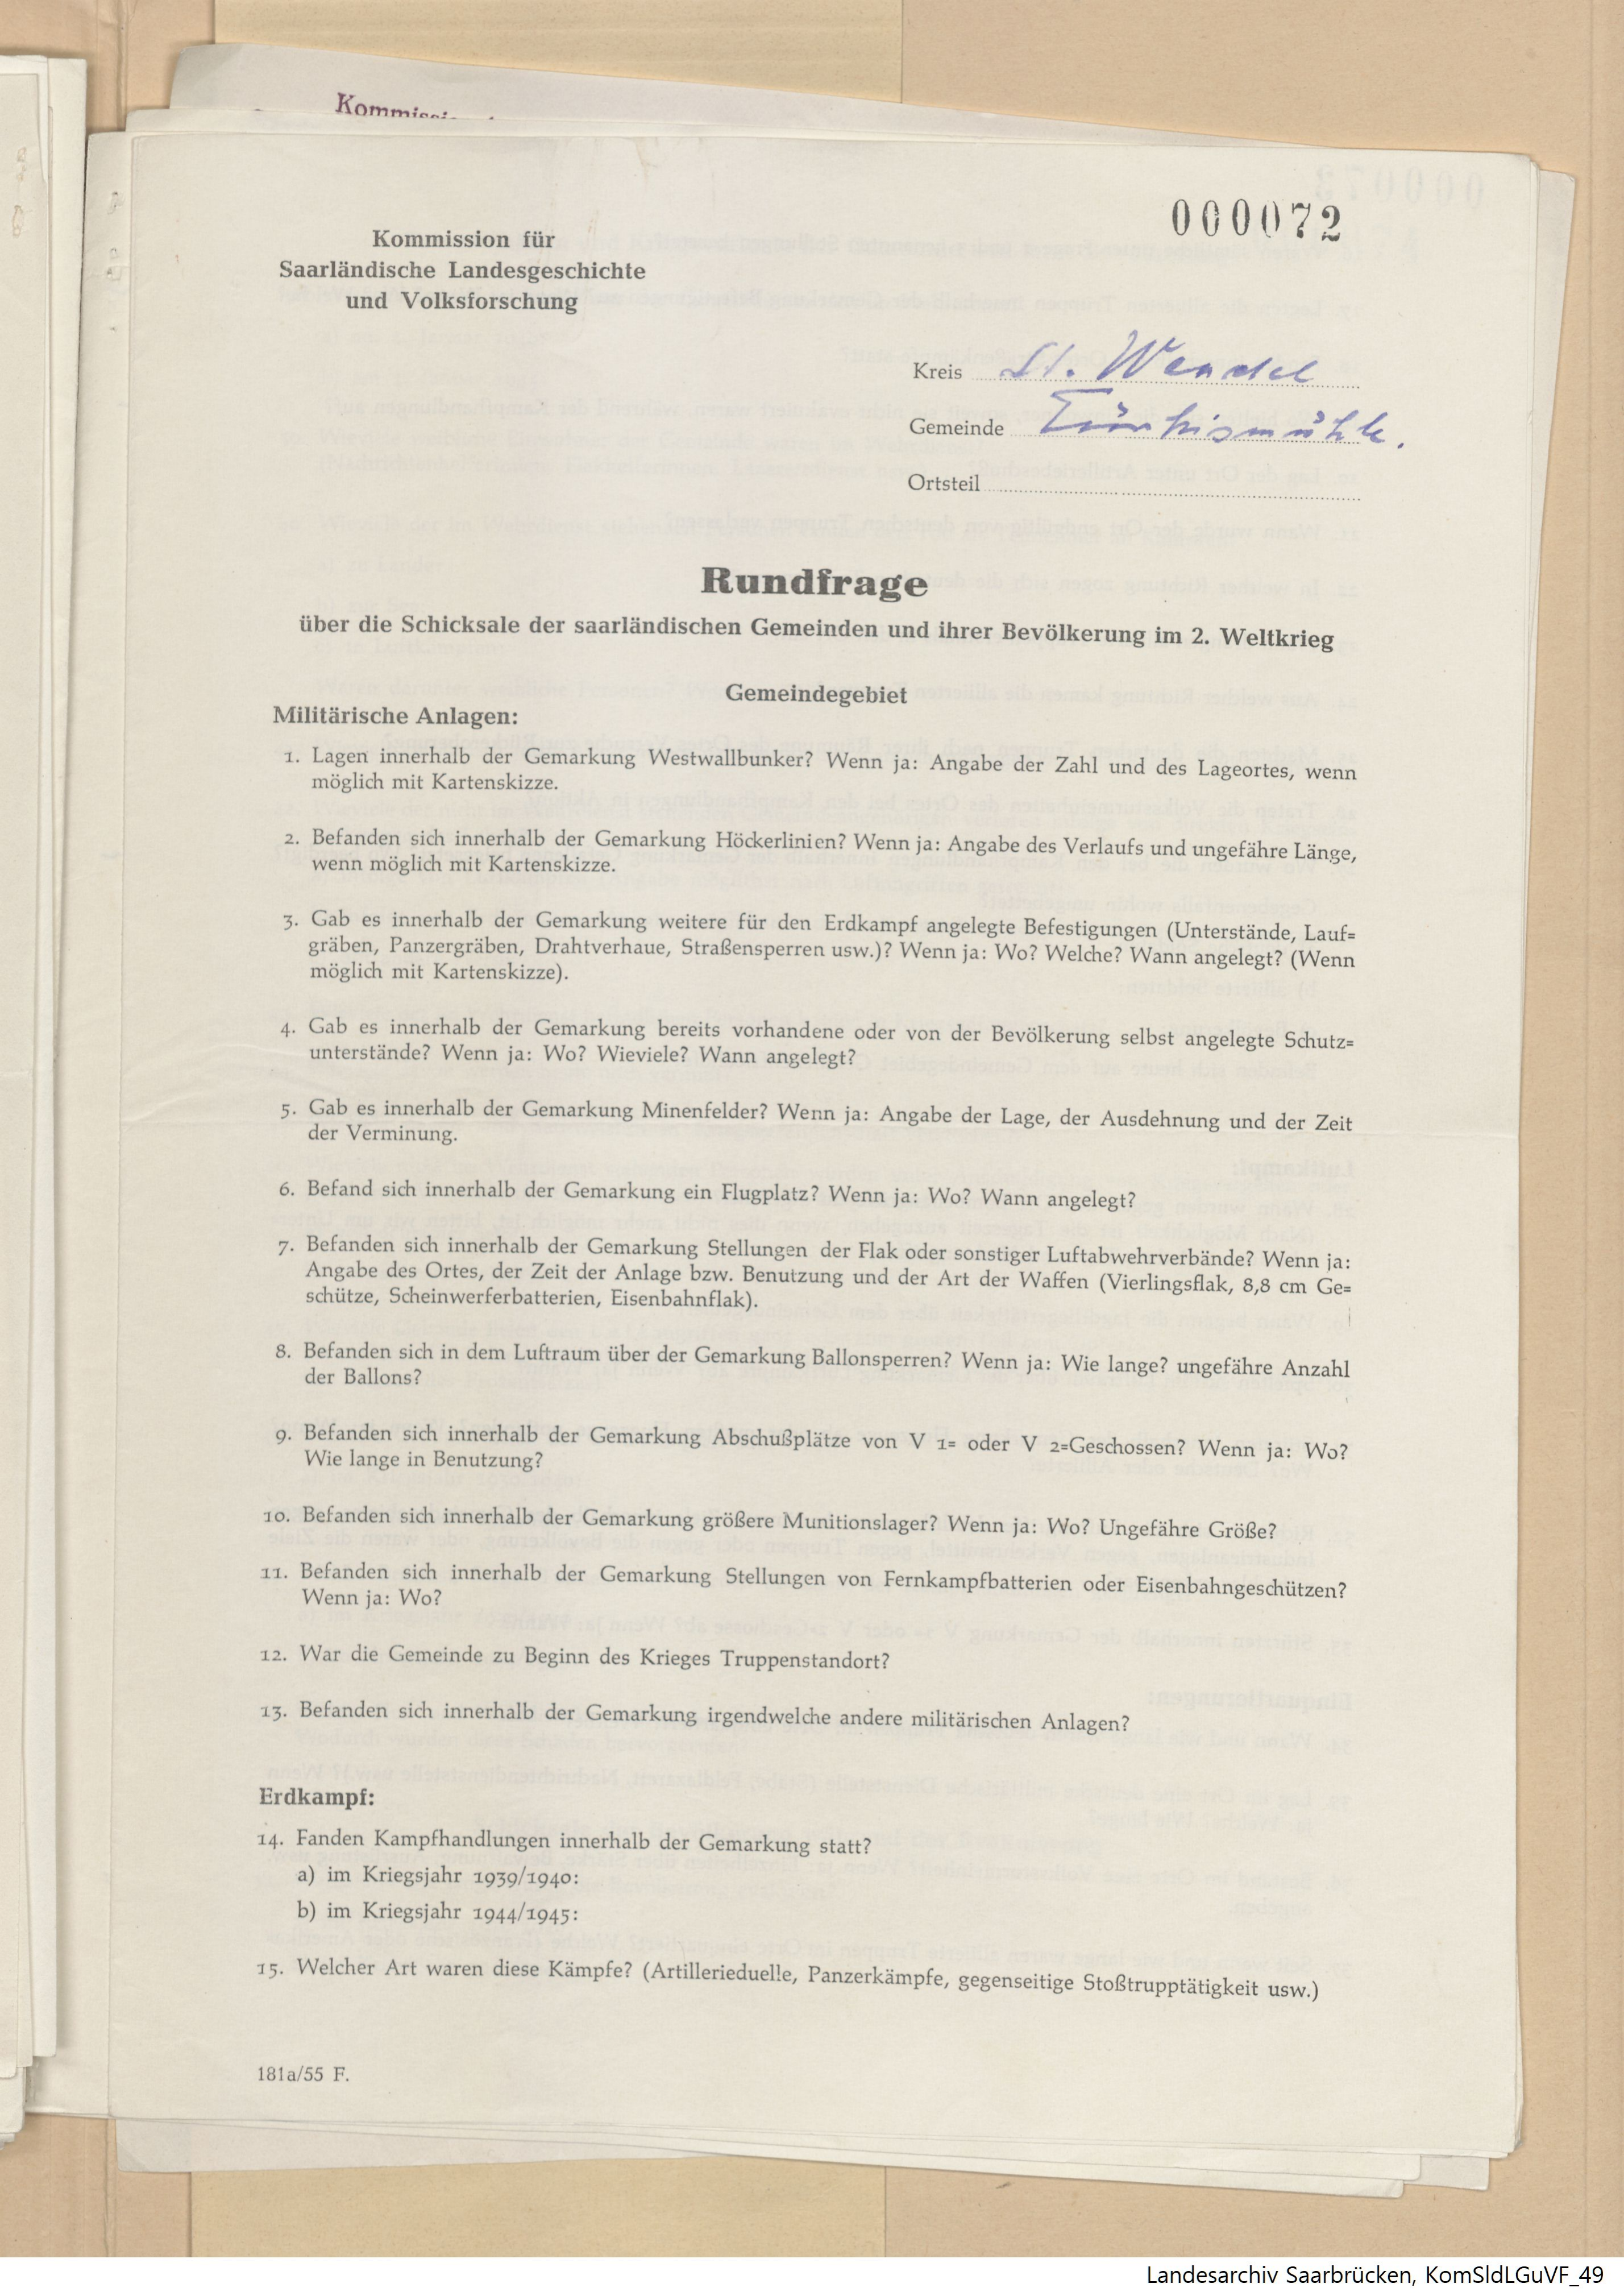 Kommission
000072
Kommission für
Saarländische Landesgeschichte
und Volksforschung
Kreis St. Wendel
Gemeinde Türkismühle.
Ortsteil
Rundfrage
über die Schicksale der saarländischen Gemeinden und ihrer Bevölkerung im 2. Weltkrieg
Gemeindegebiet
Militärische Anlagen:
1. Lagen innerhalb der Gemarkung Westwallbunker? Wenn ja: Angabe der Zahl und des Lageortes, wenn
möglich mit Kartenskizze.
2. Befanden sich innerhalb der Gemarkung Höckerlinien? Wenn ja: Angabe des Verlaufs und ungefähre Länge,
wenn möglich mit Kartenskizze.
3. Gab es innerhalb der Gemarkung weitere für den Erdkampf angelegte Befestigungen (Unterstände, Lauf=
gräben, Panzergräben, Drahtverhaue, Straßensperren usw.)? Wenn ja: Wo? Welche? Wann angelegt? (Wenn
möglich mit Kartenskizze).
4. Gab es innerhalb der Gemarkung bereits vorhandene oder von der Bevölkerung selbst angelegte Schutz=
unterstände? Wenn ja: Wo? Wieviele? Wann angelegt?
5. Gab es innerhalb der Gemarkung Minenfelder? Wenn ja: Angabe der Lage, der Ausdehnung und der Zeit
der Verminung.
6. Befand sich innerhalb der Gemarkung ein Flugplatz? Wenn ja: Wo? Wann angelegt?
7. Befanden sich innerhalb der Gemarkung Stellungen der Flak oder sonstiger Luftabwehrverbände? Wenn ja:
Angabe des Ortes, der Zeit der Anlage bzw. Benutzung und der Art der Waffen (Vierlingsflak, 8,8 cm Ge=
schütze, Scheinwerferbatterien, Eisenbahnflak).
8. Befanden sich in dem Luftraum über der Gemarkung Ballonsperren? Wenn ja: Wie lange? ungefähre Anzahl
der Ballons?
9. Befanden sich innerhalb der Gemarkung Abschußplätze von V 1= oder V 2=Geschossen? Wenn ja: Wo?
Wie lange in Benutzung?
10. Befanden sich innerhalb der Gemarkung größere Munitionslager? Wenn ja: Wo? Ungefähre Größe?
11. Befanden sich innerhalb der Gemarkung Stellungen von Fernkampfbatterien oder Eisenbahngeschützen?
Wenn ja: Wo?
12. War die Gemeinde zu Beginn des Krieges Truppenstandort?
13. Befanden sich innerhalb der Gemarkung irgendwelche andere militärischen Anlagen?
Erdkampf:
14. Fanden Kampfhandlungen innerhalb der Gemarkung statt?
a) im Kriegsjahr 1939/1940:
b) im Kriegsjahr 1944/1945:
15. Welcher Art waren diese Kämpfe? (Artillerieduelle, Panzerkämpfe, gegenseitige Stoßtrupptätigkeit usw.)
181a/55 F.
Landesarchiv Saarbrücken, KomSldLGuVF_49